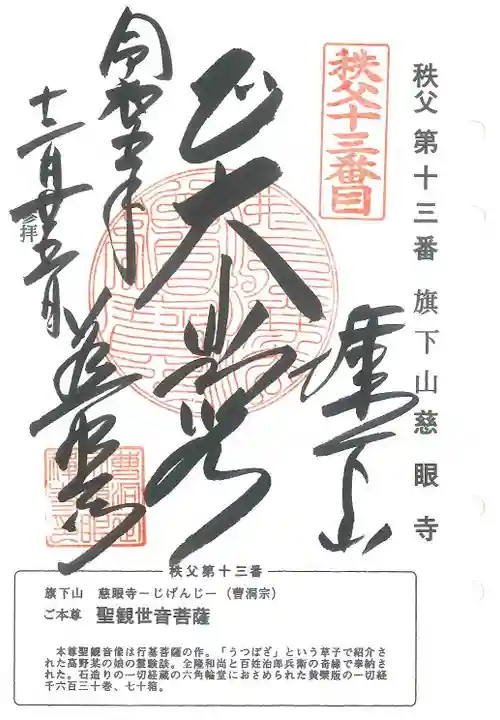 秩父第十三番 旗下山慈眼寺
秩父十三番目
旗下山
大悲殿
慈眼寺
十二月廿五日
参拝
秩父第十三番
旗下山 慈眼寺ーじげんじー(曹洞宗)
ご本尊 聖観世音菩薩
本尊聖観音像は行基菩薩の作。「うつぼざ」という草子で紹介さ
れた高野某の娘の霊験談。全隆和尚と百姓治郎兵衛の奇縁で奉納さ
れた。石造りの一切経蔵の六角輪堂におさめられた黄檗版の一切経
千六百三十巻、七十箱。